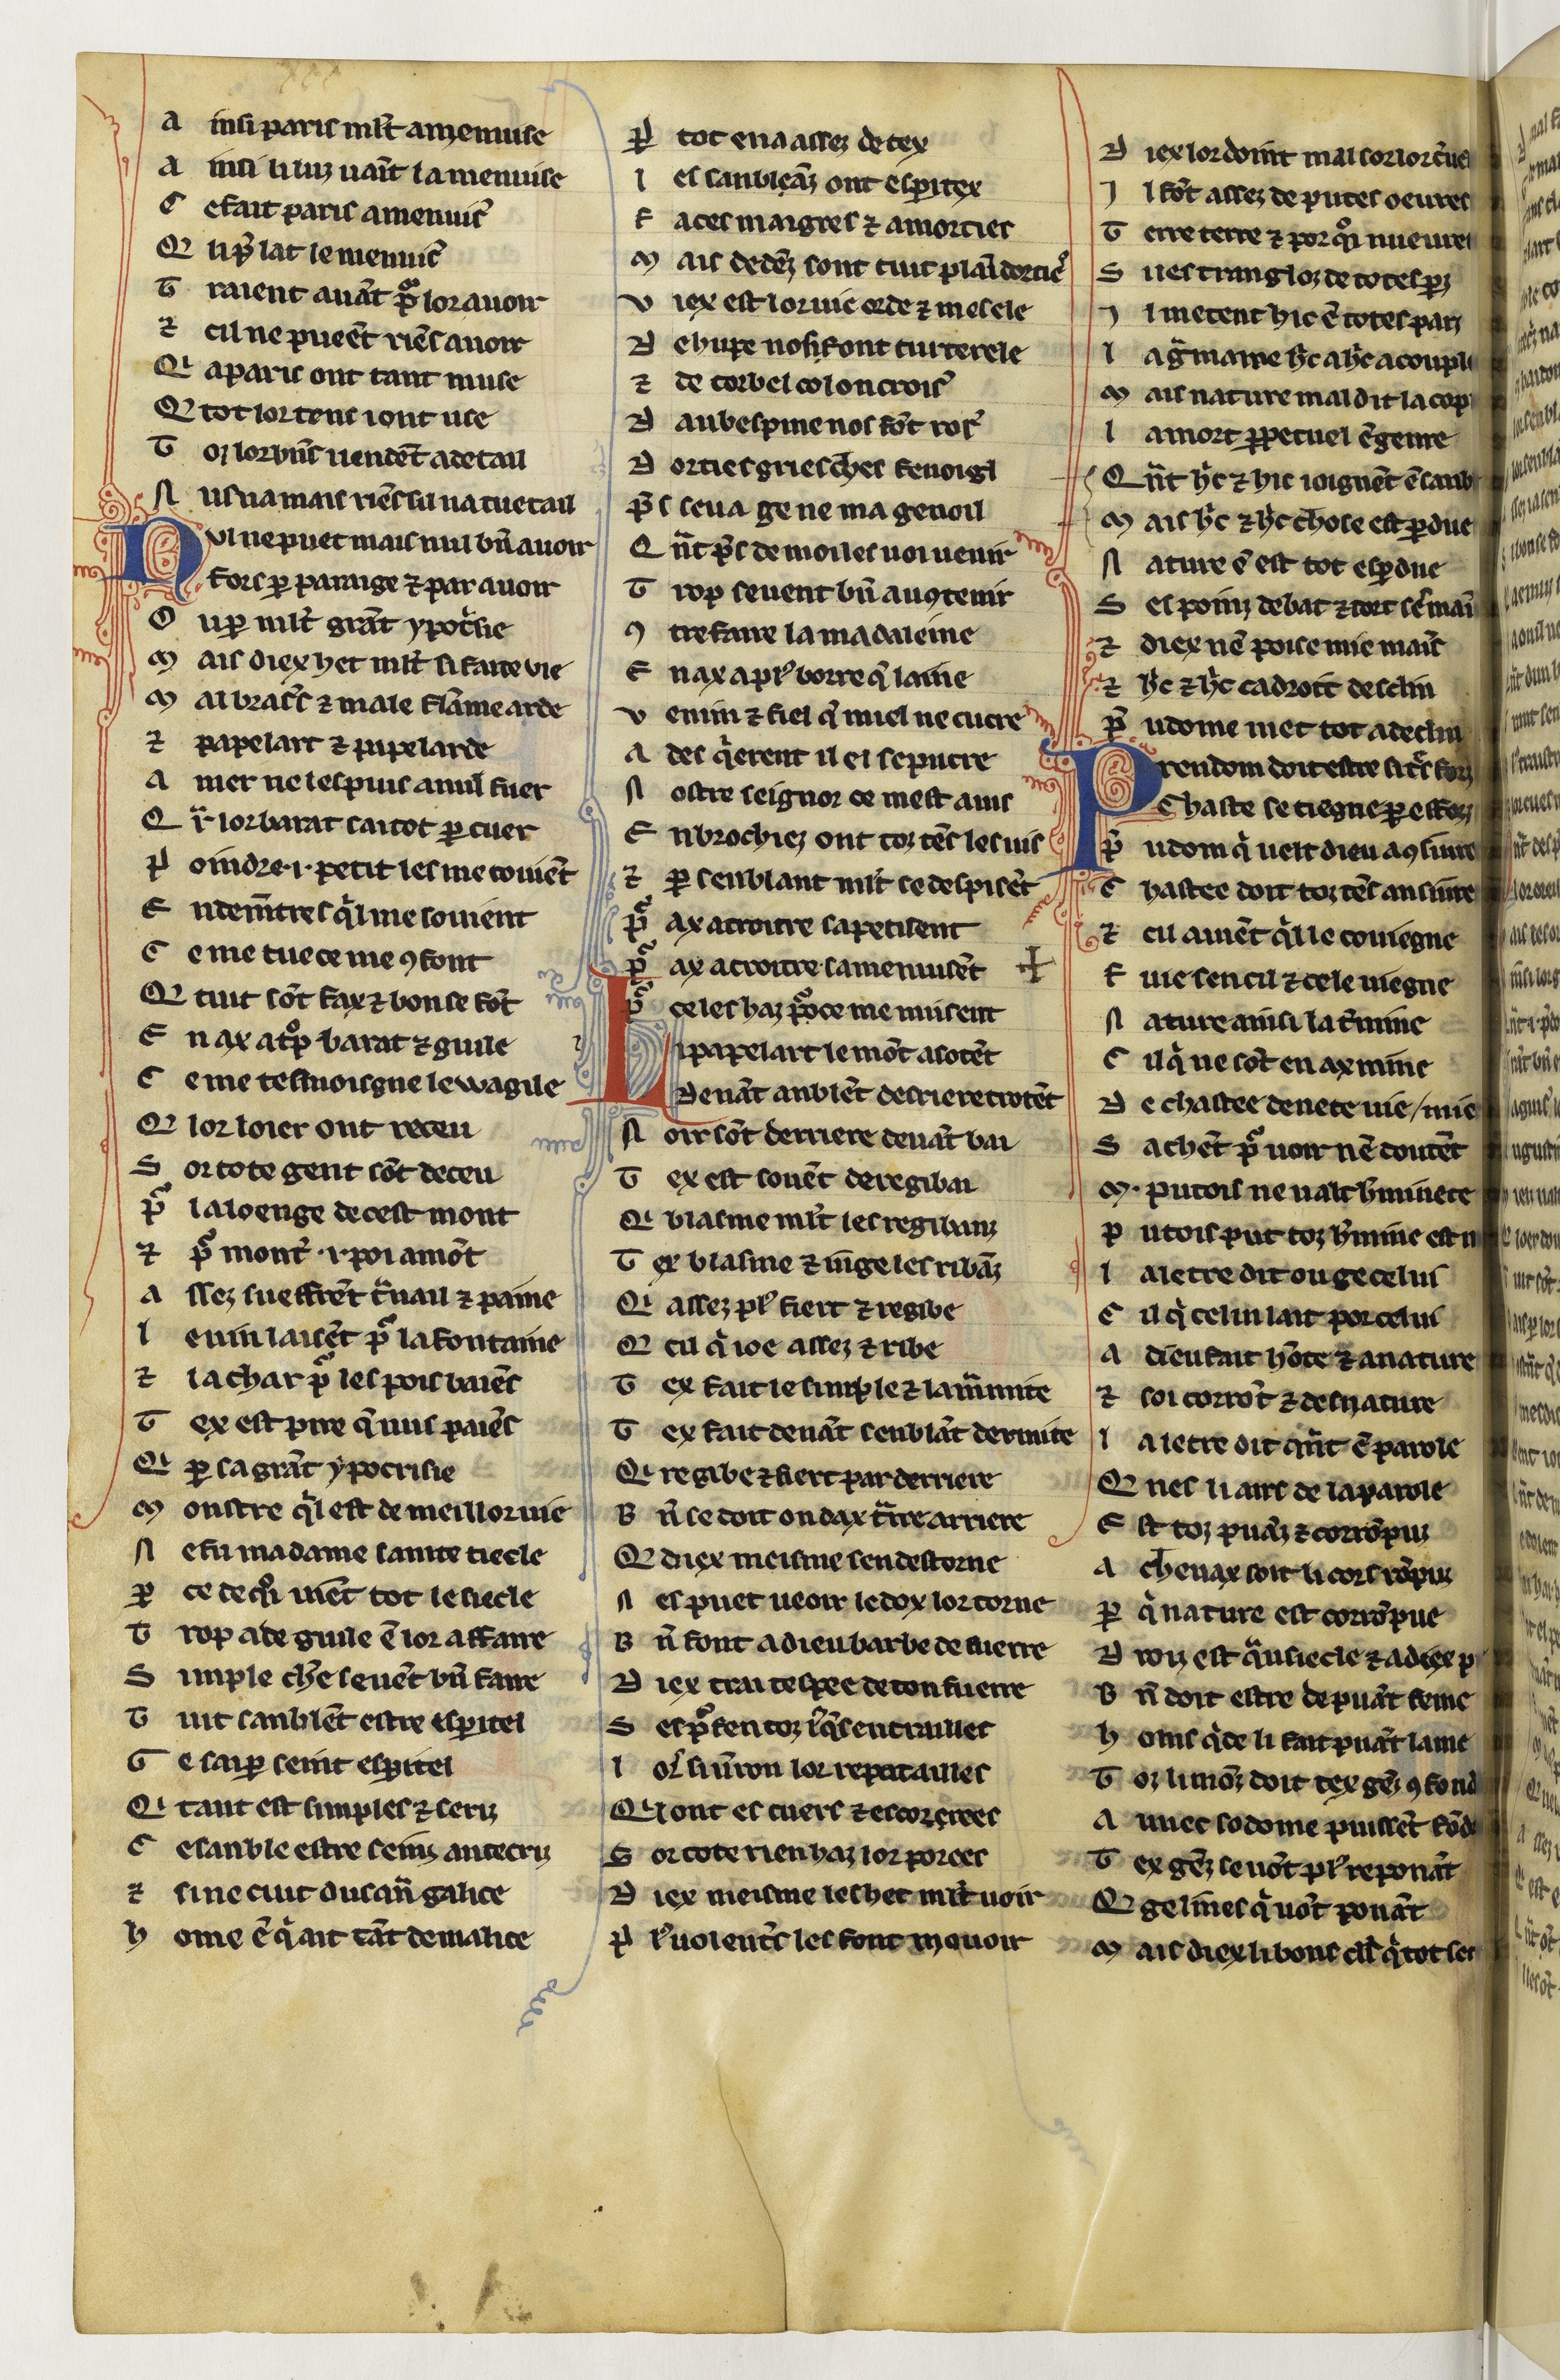 A insi paris ml̃t amenuise
A insi li luz uãt la menuise
C e fait paris amenuis᷑
Q li p̃ lat le menuis᷑
T raient auãt p̃ lor auoir
⁊ cil ne pueẽt riẽs auoir
Qi a paris ont tant muse
Q tot lor tens i ont use
T oz lor bñs uendẽt a detail
N us na mais riẽs sil na tuetail
N Vl ne puet mais nul bñ auoir
Fors ꝑ paraige ⁊ par auoir
O u ꝑ ml̃t grãt ypoc̃sie
M ais diex het ml̃t si faite vie
M al brasĩs ⁊ male flãme arde
⁊ papelart ⁊ papelarde
A mer ne les puis a nul fuer
Q r̃ lor barat sai tot ꝑ cuer
P oindre .i. petit les me couiẽt
E ndem̃tres q̃l me souient
C e me tue ce me ꝯfont
Q tuit sõt fax ⁊ bon se fõt
E n ax a t̊p barat ⁊ guile
C e me tesmoisgne lewagile
Q lor loier ont receu
S or tote gent sõt deceu
P̃ la loenge de cest mont
⁊ p̃ mont᷑ .i. poi amõt
A ssez sueffrẽt t̃uail ⁊ paine
L e uin laissẽt p̃ la fontaine
⁊ la char p̃ les pois baiẽs
T ex est pire q̃ nus paiẽs
Qi ꝑ sa grãt ypocrisie
M onstre q̃l est de meillor uie
N e fu ma dame sainte tiecle
P ce de q̊i uiẽt tot le siecle
T rop a de guile ẽ lor affaire
S imple ch̃e seuẽt bñ faire
T uit sanblẽt estre esperitel
T e sai ꝑ seint esperitel
Qi tant est simples ⁊ seriz
C e sanble estre seinz antecriz
⁊ sine cuit dusqã galice
H ome ẽ q̃ ait tãt de malice
P tot en a assez de tex
L es sanblãz ont esperitex
F aces maigres ⁊ amorties
M ais dedẽz sont tuit plaĩ dorties᷑
V iex est lor uie orde ⁊ mesele
D e hupe nos font turterele
⁊ de corbel coloncrois᷑
D aubespine nos fõt ros᷑
D orties griesches fenoigl
P̃ s seua ge ne ma genoil
Q ñt p̃s de moi les uoi uenir
T rop seuent bñ au ꝯtenir
Ꝯ trefaire la madaleine
E n ax a pl᷒ borre q̃ laine
V enin ⁊ fiel q̃ miel ne cucre
A des q̃erent il el sepucre
N ostre seignor ce mest auis
E nbrochiez ont toz tẽs les uis
⁊ ꝑ senblant ml̃t se despisẽt
P̃ ax acroitre sapetisent
P̃ ax acroitre samenuisẽt
P̃ ce les haz p̃ ce me nuisent
L i papelart le mõt asotẽt
Deuãt anblẽt derriere trotẽt
N oir sõt derriere deuãt bai
T ex est souẽt de regibai
Qi blasme ml̃t les regibanz
T ex blasme ⁊ iuge les ribãz
Qi assez pl᷒ fiert ⁊ regibe
Q cil q̃ ioe assez ⁊ ribe
T ex fait le simple ⁊ la m̃mite
T ex fait deuãt senblãt dermite
Qi regibe ⁊ fiert par derriere
B ñ se doit on dax t̃re arriere
Q diex meisme sen destorne
N es puet ueoir le dox lor torne
B ñ font a dieu barbe de fuerre
D iex trai tespee de ton fuerre
S es p̃fen toz iusq̃s entrailles
L ors si uerron lor repotailles
Qi ont es cuers ⁊ es corçrees
S or tote rien haz lor porees
D iex meisme les het ml̃t uoir
P l᷒ uoientĩs les font mouoir
D iex lor doint mal sor lor c̃ue
I l fõt assez de putes oeures
T erre terre ⁊ por q̊i nueure
S nes tranglo₂ de totes parz
I l metent hic ẽ totes parz
L a g̃maire hic a hic acouple
M ais nature maldit la cop
L a mort ꝑpetuel ẽgenre
Q ñt hic ⁊ hic ioignẽt ẽsanb
M ais hic ⁊ hic chose est ꝑdue
N ature ẽ est tot esperdue
S es poinz debat ⁊ tort ses mai
⁊ diex nẽ poise mie mais
⁊ hic ⁊ hic ca droit desclin
P̃ udome met tot a declin
P rendom doit estre si t̃s forz
Chaste se tiegne ꝑ esforz
P̃ udom q̃ uelt dieu a ꝯsiure
C hastee doit toz tẽs ansiure
⁊ cil auiẽt q̃l le couiegne
F uie sen cil ⁊ cele uiegne
N ature ainsi la t̃mine
C il q̃ ne sõt en ax mine
D e chastee de nete uie / mie
S achẽt p̃ uoir nẽ doutẽt
M. putois ne ualt .i. h̃minete
P utois put toz h̃mine est n
L a letre dit ou ge celui
C il q̃ celui lait por celui
A dieu fait hõte ⁊ a nature
⁊ soi corrõt ⁊ desnature
L a letre dit qñt ẽ parole
Q nes li airs de la parole
E st toz puãz ⁊ corrõpuz
A chenax soit li cors rõpuz
P q̃ nature est corrõpue
D roiz est q̃u siecle ⁊ a diex p
B ñ doit estre de puãt feme
H oms q̃ de li fait puãt lame
T oz li mõz doit tex gẽz ꝯfond
A uuec sodome puissẽt fõd
T ex gẽz se uõt pl᷒ reponãt
Q gelines q̃ uõt ponãt
M ais diex li bons cl̃rs q̃ tot set